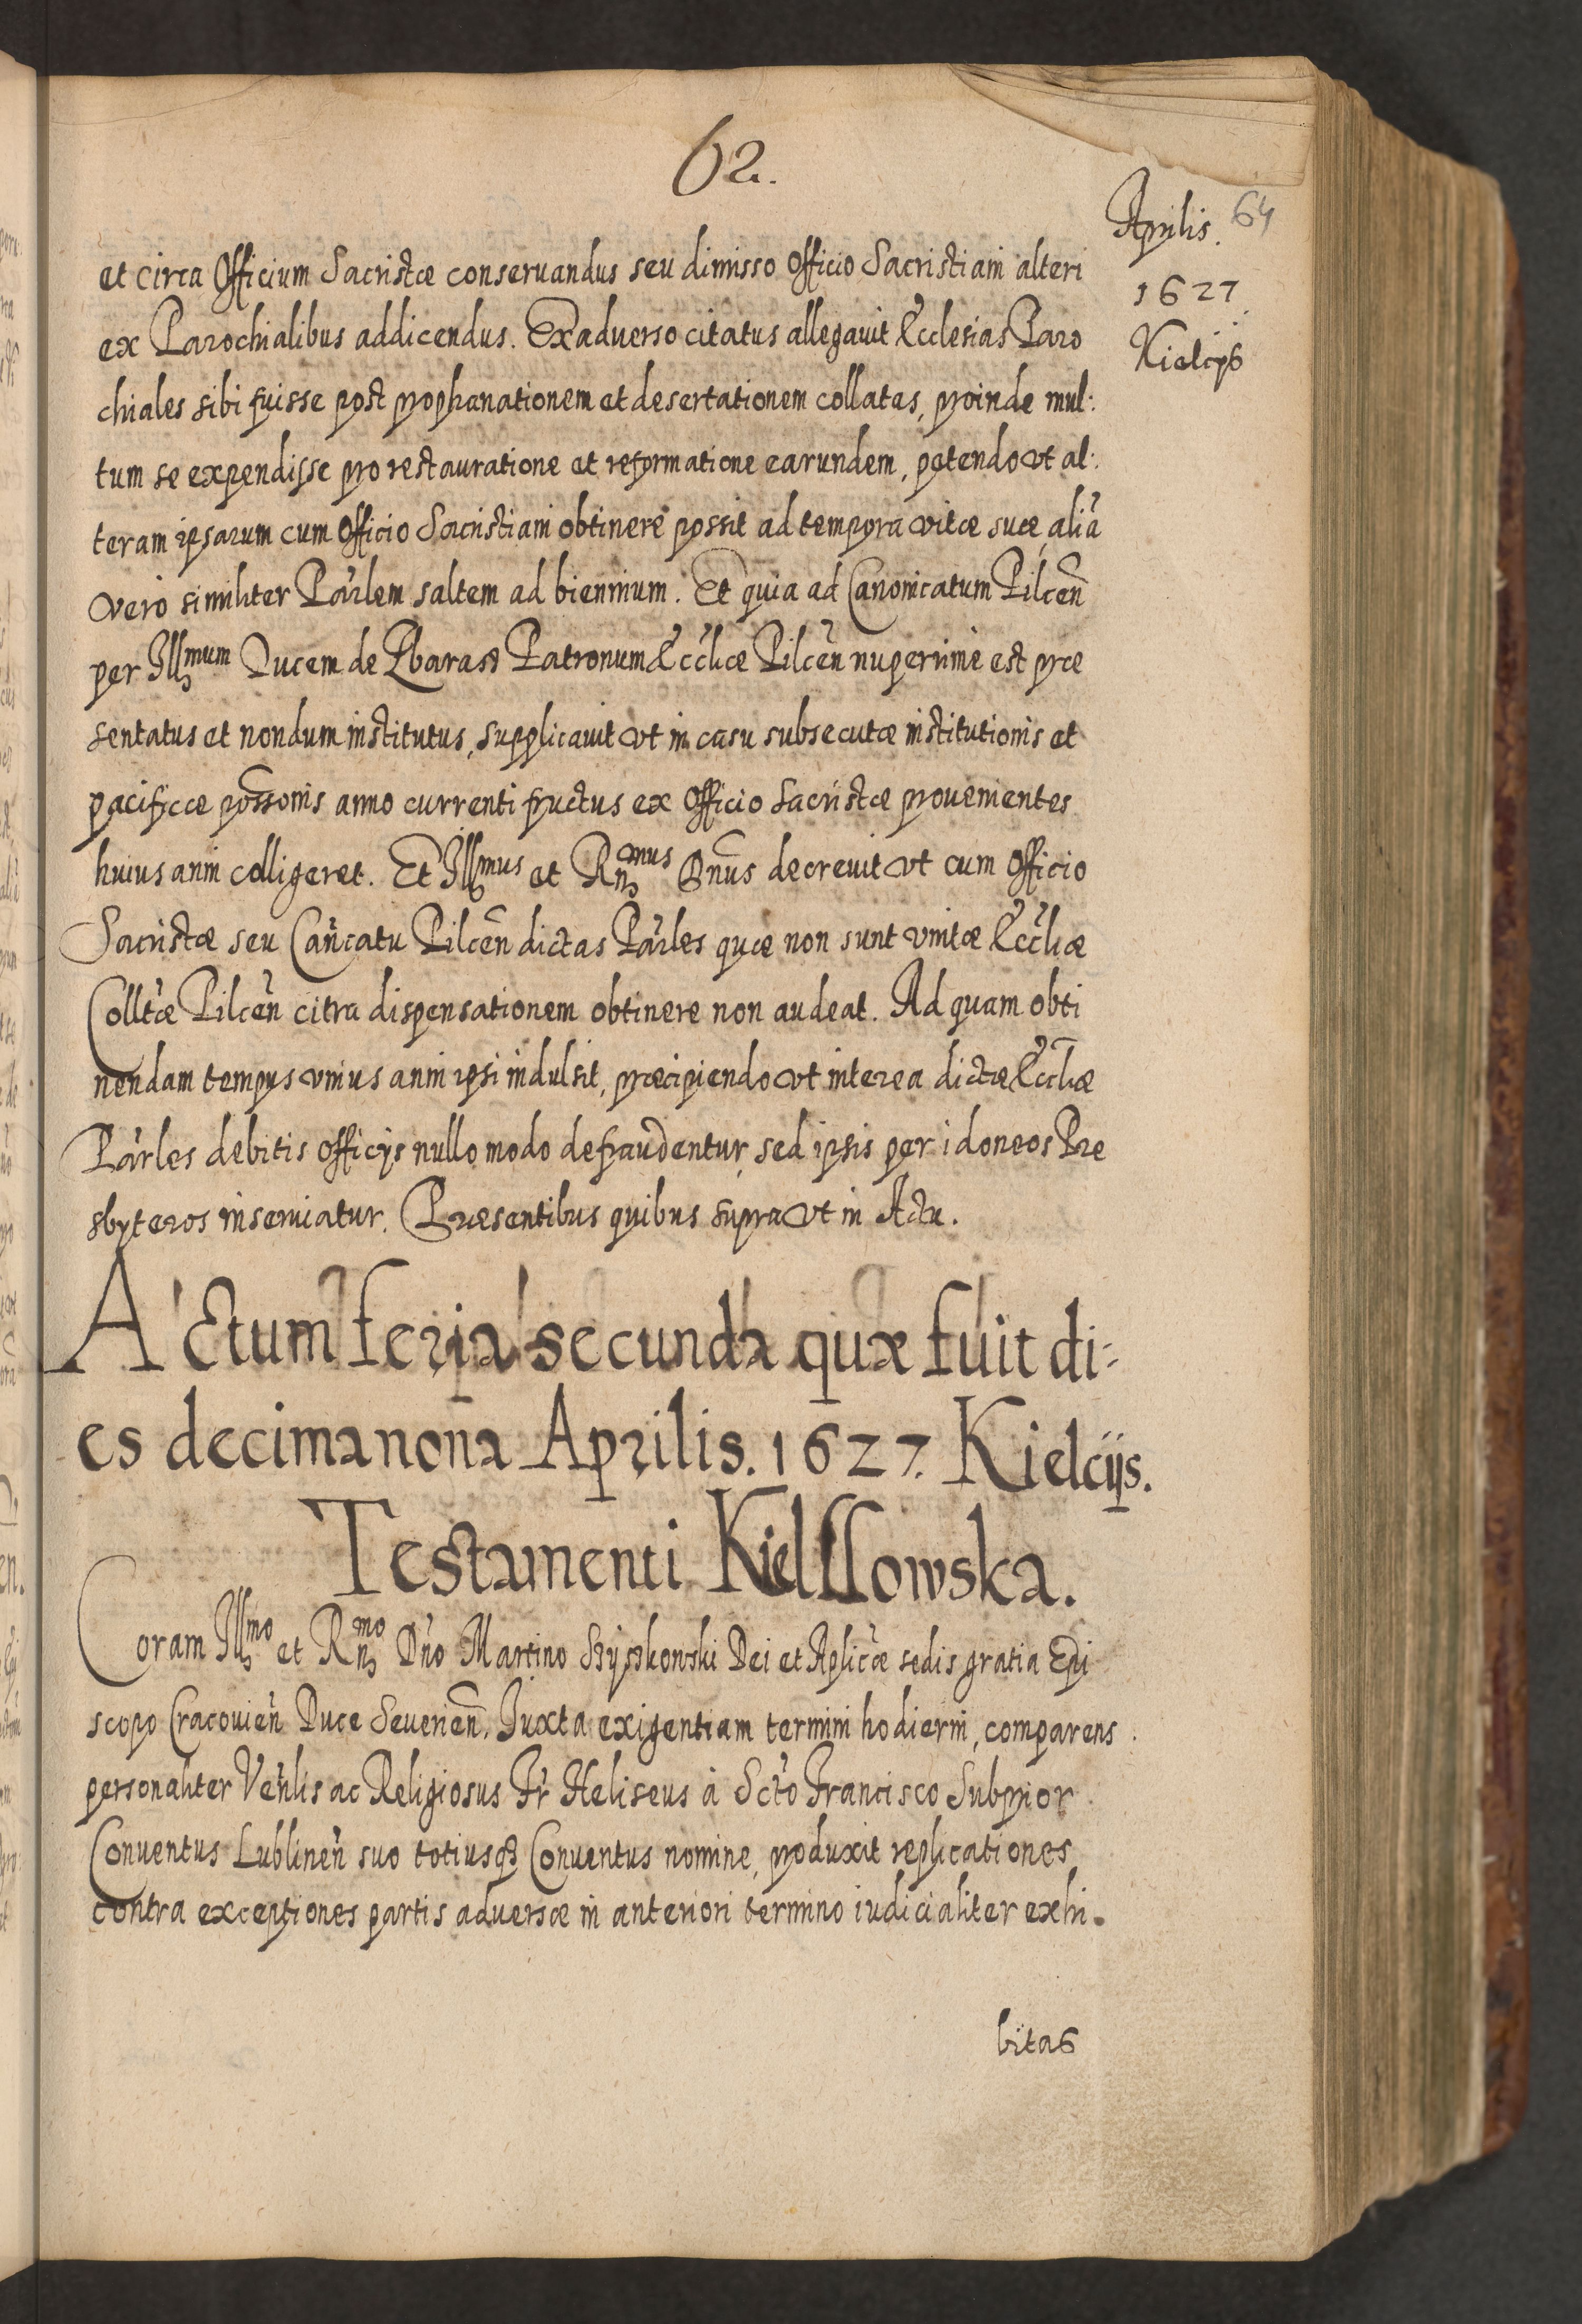 62.
Aprilis. 64
1627.
Kielcijs
et circa Officium Sacristæ conseruandus seu dimisso Officio Sacristiam alteri
ex Parochialibus addicendus. Ex aduerso citatus allegauit Ecclesias Paro
chiales sibi fuisse post prophanationem et desertationem collatas, proinde mul:
tum se expendisse pro restauratione et reformatione earundem, petendo vt al:
teram ipsarum cum Officio Sacristiam obtinere possit ad tempora vitæ suæ, aliã
vero similiter Parlem saltem ad biennium. Et quia ad Canonicatum Pilcen̄
per Illmum Ducem de Zbaras Patronum Ecclicæ Pilcen̄ nuperrime est præ
sentatus et nondum institutus, supplicauit vt in casu subsecutæ institutionis et
pacificæ possonis anno currenti fructus ex Officio Sacristæ prouenientes
huius anni colligeret. Et Illmus et Rnmus Dnus decreuit vt cum Officio
Sacristæ seu Cancatu Pilcen̄ dictas Parles quæ non sunt vnitæ Eccliæ
Colltæ Pilcen̄ citra dispensationem obtinere non audeat. Ad quam obti
nendam tempus vnius anni ipsi indulsit, præcipiendo vt interea dictæ Eccliæ
Parles debitis officijs nullo modo defraudentur, sed ipsis per idoneos Pre
sbyteros inseruiatur. Præsentibus quibus supra vt in Actu.
Actum feria secunda quæ fuit di-
es decimanona Aprilis. 1627. Kielcijs.
Testamenti Kielssowska.
Coram Illmo et Rnmo Dno Martino Szyszkowski Dei et Aplicæ sedis gratia Epi
scopo Cracouien̄ Duce Seuerien̄. Iuxta exigentiam termini hodierni, comparens
personaliter Venlis ac Religiosus Fr Heliseus à Scto Francisco Subprior
Conuentus Lublinen̄ suo totiusq3 Conuentus nomine, produxit replicationes
contra exceptiones partis aduersæ in anteriori termino iudicialiter exhi.
bitas